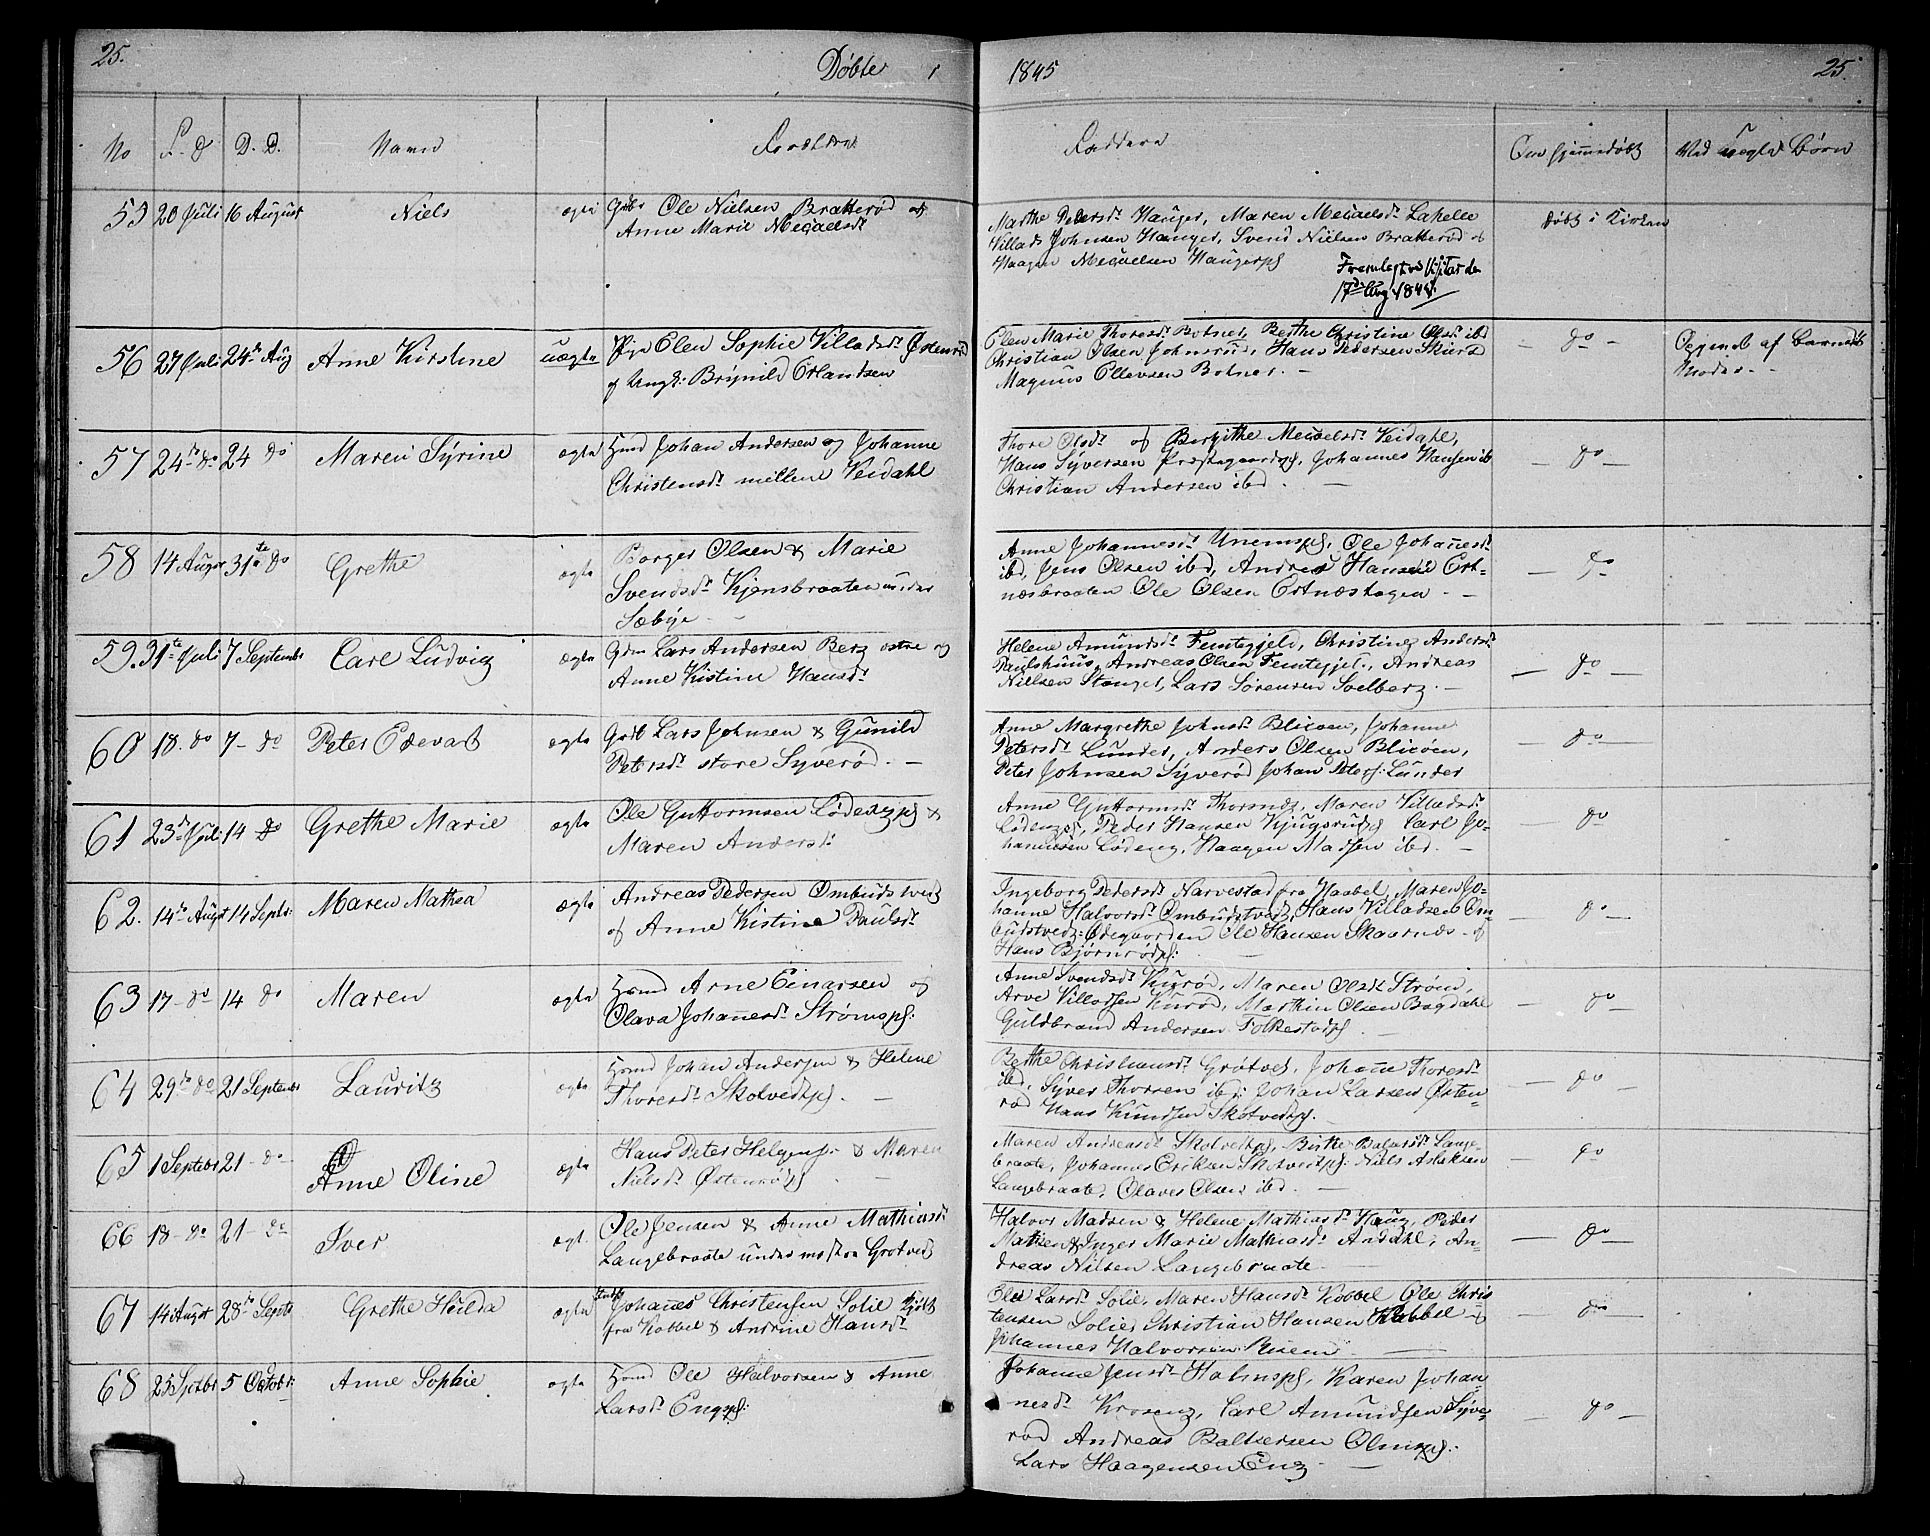 25.
Døbte
1845
25.
No
F. D
D. D.
Navn
Forældre
Faddere
Om hjemmedøbt
Ved uægte Børn
55 20 Juli 16 August Niels ægte Gdbr Ole Nielsen Bratterød og
Anne Marie Micaelsdt
Marthe Pedersdt Hauger, Maren Micaelsdt Lahelle
Villads Johnsen Hauger, Svend Nielsen Bratterød og
Haagen Micaelsen Haugerpl
Fremlagt ved Visitas den
17de Aug 1848.
døbt i Kirken
56 27 Juli 24de Aug Anne Kirstine uægte Pige Elen Sophie Villadsdt Østenrød
og Ungk: Brynild Erlandsen
Elen Marie Thoresdt Botner, Berthe Christine Olsdt ibd
Christian Olsen Johnsrud, Hans Pedersen Skiera
Magnus Ellevsen Botner. -
- do -
Opgivet af Barnets
Moder. -
57 24de do 24 do Maren Syrine ægte Hmd Johan Andersen og Johanne
Christensdt mellem Veidahl
Thore Olsdt og Bergithe Micaelsdt Veidahl,
Hans Syversen Præstegaardspl, Johannes Hansen ib
Christian Andersen ibd. -
- do -
58 14 Augst 31te do Grethe ægte Borger Olsen & Marie
Svendsdt Kjensbraaten under
Sæbye -
Anne Johannesdt Unemspl, Ole Johanesdt
ibd, Jens Olsen ibd, Andreas Hansen Ert-
næsbraaten Ole Olsen Ertnæshagen. -
- do -
59. 31te Juli 7 Septembr Carl Ludvig ægte Gdm Lars Andersen Berg østre og
Anne Kistine Hansdt
Helene Amundsdt Femtegjeld, Christine Andersdt
Paulshuus, Andreas Olsen Femtegjel., Andreas
Nielsen Stanger, Lars Sørensen Solberg. -
- do -
60 18. do 7 - do Peter Edevart ægte Gdbr Lars Johnsen & Gunild
Petersdt store Syverød. -
Anne Margrethe Johnsdt Blixøen, Johanne
Petersdt Lunder, Anders Olsen Blixøen,
Peter Johnsen Syverød Johan Peters: Lunder
- do -
61 23de Juli 14 do Grethe Marie ægte Ole Guttormsen Lødengpl &
Maren Andersdt
Anne Guttormsdt Thorsnæs, Maren Villadsdt
Lødengpl, Peder Hansen Kjugsrudpl Carl Jo-
hannesen Lødeng, Haagen Madsen ibd. -
- do -
62. 14de Augst 14 Septr: Maren Mathea ægte Andreas Pedersen Ombudstvedt
og Anne Kistine Paulsdt
Ingeborg Pedersdt Narvestad fra Haabel, Maren Jo-
hanne Halvorsdt Ombudstvedt, Hans Villadsen Om-
budstvedt: Ødegaarden Ole Hansen Skaarnæs - og
Hans Bjørnrødpl: -
- do -
63 17 - do 14 do Maren ægte Hmd Arne Einarsen og
Olava Johanesdt Strømspl:
Anne Svendsdt Kurød, Maren Olsdt Strøm,
Arve Villadsen Kurød, Marthin Olsen Bogdahl
Guldbrand Andersen Folkestadpl. -
- do -
64 29de do 21 Septembr Lauritz ægte Hmd Johan Andersen & Helene
Thoresdt Skotvedtpl. -
Berthe Christiansdt Grøtvet, Johane Thoresdt
ibd, Syver Thorsen ibd: Johan Larsen Østen-
rød Hans Knudsen Skotvedtpl.
- do -
65 1 Septebr 21 - do Anne Oline ægte Hans Peter Helgens: & Maren
Nielsdt Østenrødpl -
Maren Andreasdt Skotvedtpl, Birthe Balzersdt Lange-
braate, Johannes Eriksen Skotvedtpl: Niels Aslaksen
Langebraate, Olaves Olsen ibd. -
- do -
66 18 - do 21 - do Iver ægt. Ole Jensen & Anne Mathiasdt
Langebraate under mellem Grøtved
Halvor Madsen & Helene Mathiasdt Haug, Peder
Madsen & Inger Marie Mathiasdt Andahl, An-
dreas Nilsen Langebraate -
- do -
67 14 August 28de Septr Grethe Hulda ægte Johanes Christensen Solie
fra Kobbel & Andrine Hansdt
Ole Larsdt Solie, Maren Hansdt Kobbel Ole Chris
tensen Solie, Christian Hansen Kobbel - og
Johannes Halvorsen Risem -
- do -
68 25 Septbr 5 Octobr: Anne Sophie ægte Hmd Ole Halvorsen & Anne
Larsdt Engspl:
Johanne Jensdt Halmspl, Karen Johan-
nesdt Kroseng, Carl Amundsen Syve-
rød Andreas Baltzersen Olmspl:
Lars Haagensen Eng -
- do -